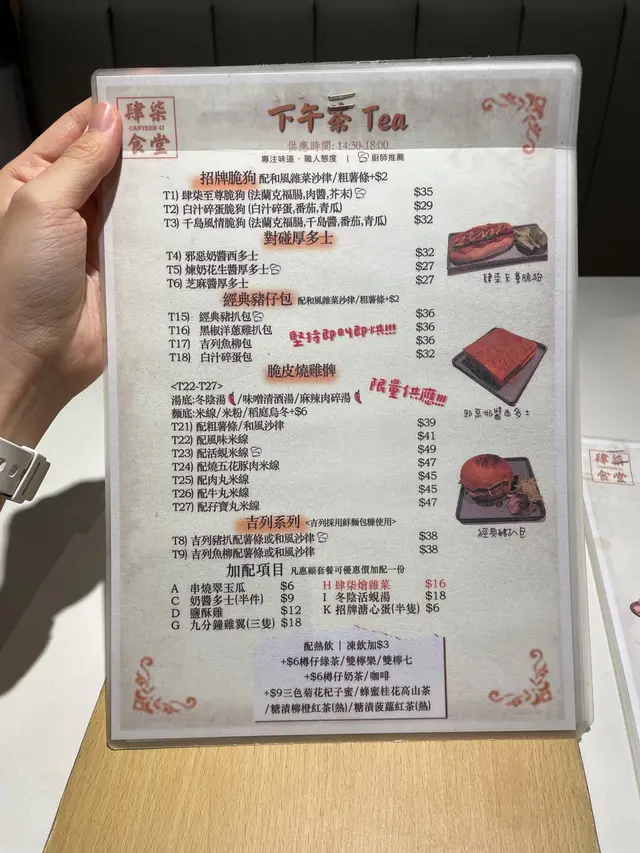 肆柒
CANTEEN 47
食堂
下午茶 Tea
供應時間: 14:30-18:00
專注味道·職人態度 | 廚師推薦
招牌脆狗 配和風雜菜沙律/粗薯條+$2
T1) 肆柒至尊脆狗 (法蘭克福腸,肉醬,芥末) $35
T2) 白汁碎蛋脆狗 (白汁碎蛋,番茄,青瓜) $29
T3) 千島風情脆狗 (法蘭克福腸,千島醬,番茄,青瓜) $32
對碰厚多士
T4) 邪惡奶醬西多士 $32
T5) 煉奶花生醬厚多士 $27
T6) 芝麻醬厚多士 $27
肆柒至尊脆狗
經典豬仔包 配和風雜菜沙律/粗薯條+$2
T15) 經典豬扒包 $36
T16) 黑椒洋蔥雞扒包 $36
T17) 吉列魚柳包 $36
T18) 白汁碎蛋包 $32
堅持即叫即烘!!!
邪惡奶醬西多士
脆皮燒雞髀
限量供應!!!
<T22-T27>
湯底:冬陰湯/味噌清酒湯/麻辣肉碎湯
麵底:米線/米粉/稻庭烏冬+$6
T21) 配粗薯條/和風沙律 $39
T22) 配風味米線 $41
T23) 配活蜆米線 $49
T24) 配燒五花豚肉米線 $47
T25) 配肉丸米線 $45
T26) 配牛丸米線 $45
T27) 配孖寶丸米線 $47
經典豬扒包
吉列系列 <吉列採用鮮麵包糠使用>
T8) 吉列豬扒配薯條或和風沙律 $38
T9) 吉列魚柳配薯條或和風沙律 $38
加配項目 凡惠顧套餐可優惠價加配一份
A 串燒翠玉瓜 $6 H 肆柒燴雜菜 $16
C 奶醬多士(半件) $9 I 冬陰活蜆湯 $18
D 鹽酥雞 $12 K 招牌溏心蛋(半隻) $6
G 九分鐘雞翼(三隻) $18
配熱飲 | 凍飲加$3
+$6樽仔綠茶/雙檸樂/雙檸七
+$6樽仔奶茶/咖啡
+$9三色菊花杞子蜜/蜂蜜桂花高山茶
/糖漬柳橙紅茶(熱)/糖漬菠蘿紅茶(熱)
肆柒
食堂